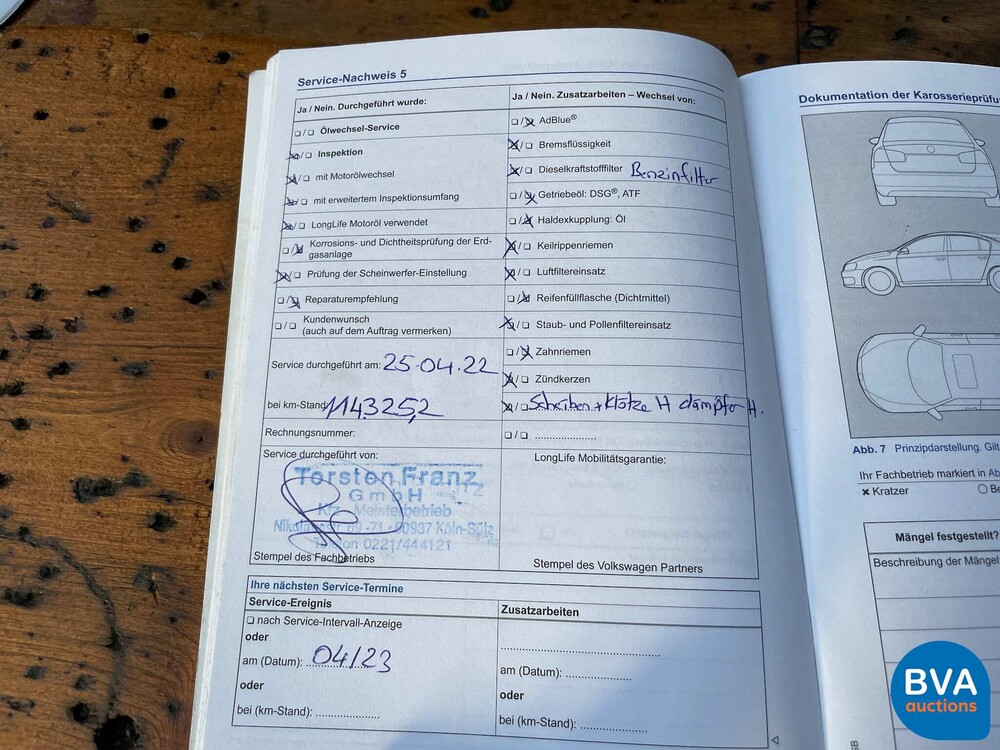 Service-Nachweis 5
Ja / Nein. Durchgeführt wurde:
Ja / Nein. Zusatzarbeiten – Wechsel von:
Ölwechsel-Service
Inspektion
mit Motorölwechsel
mit erweitertem Inspektionsumfang
LongLife Motoröl verwendet
Korrosions- und Dichtheitsprüfung der Erd-
gasanlage
Prüfung der Scheinwerfer-Einstellung
Reparaturempfehlung
Kundenwunsch
(auch auf dem Auftrag vermerken)
AdBlue®
Bremsflüssigkeit
Dieselkraftstofffilter Benzinfilter
Getriebeöl: DSG®, ATF
Haldexkupplung: Öl
Keilrippenriemen
Luftfiltereinsatz
Reifenfüllflasche (Dichtmittel)
Staub- und Pollenfiltereinsatz
Zahnriemen
Zündkerzen
Scheiben + Klötze H dämpfer H.
Service durchgeführt am: 25.04.22
bei km-Stand:
Rechnungsnummer:
Service durchgeführt von:
Torsten Franz
GmbH
Kfz - Meisterbetrieb
Nikolausstr. 69-71 • 50937 Köln-Sülz
Telefon 0221/444121
Stempel des Fachbetriebs
LongLife Mobilitätsgarantie:
Stempel des Volkswagen Partners
Ihre nächsten Service-Termine
Service-Ereignis
nach Service-Intervall-Anzeige
oder
am (Datum): 04/23
oder
bei (km-Stand):
Zusatzarbeiten
am (Datum):
oder
bei (km-Stand):
Dokumentation der Karosserieprüfun
Abb. 7 Prinzipdarstellung. Gilt
Ihr Fachbetrieb markiert in Ab
Kratzer
Be
Mängel festgestellt?
Beschreibung der Mängel
BVA
auctions